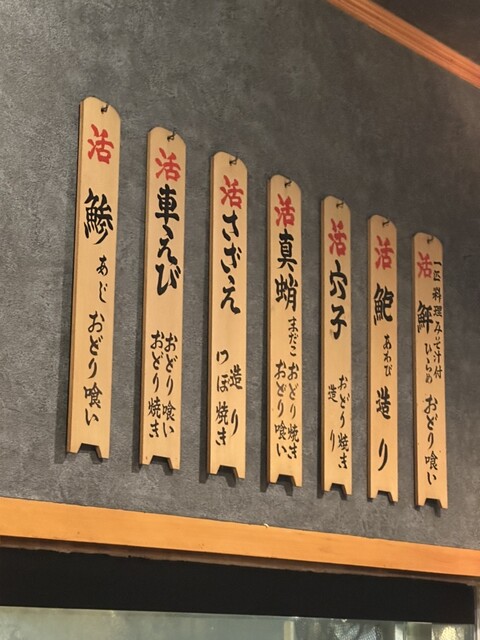 活
一匹料理みそ汁付
鮃 ひらめ おどり喰い
活 鮑 あわび 造り
活 穴子
おどり焼き
造り
活 真蛸 まだこ
おどり焼き
おどり喰い
活 さざえ
造り
つぼ焼き
活 車えび
おどり喰い
おどり焼き
活 鯵 あじ おどり喰い